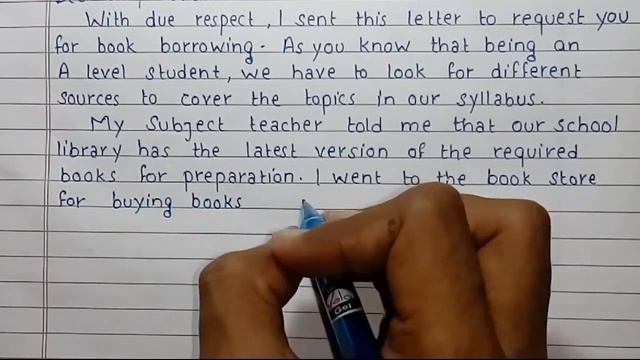 With due respect, I sent this letter to request you
for book borrowing. As you know that being an
A level student, we have to look for different
sources to cover the topics in our syllabus.
My subject teacher told me that our school
library has the latest version of the required
books for preparation. I went to the book store
for buying books
Gel